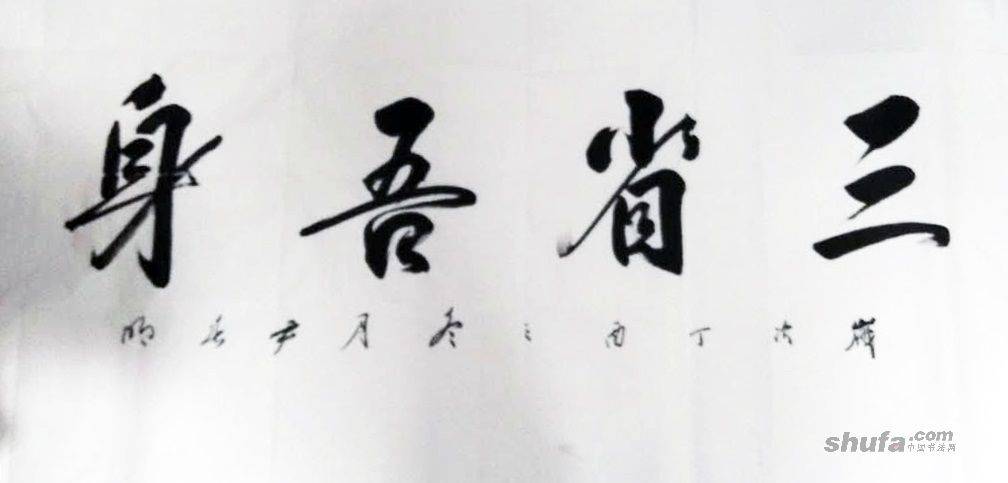 三省吾身
歲次丁酉之冬月尹長明
shufa.com
中国书法网